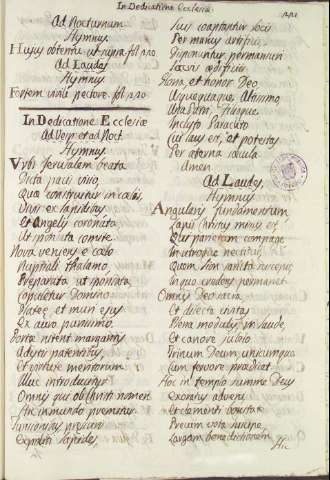 In Dedicatione Ecclesiæ
Ad Nocturnum
Hymnus
Hujus obtentu ut supra fol.
Ad Laudes
Hymnus
Fortem virili pectore fol.
In Dedicatione Ecclesiæ
Ad Vesp et ad Noct.
Hymnus
Vrbs Jerusalem beata
Dicta pacis visio,
Quæ construitur in cœlis
Vivis ex lapidibus
Et Angelis coronata
Ut sponsata comite.
Nova veniens e cœlo
Nuptiali thalamo,
Præparata ut sponsata,
Copuletur Domino
Plateæ et muri ejus
Ex auro purissimo.
Portæ nitent margaritis
Adytis patentibus,
Et virtute meritorum
Illuc introducitur
Omnis qui ob Christi nomen
Hic in mundo premitur.
Tunsionibus pressuris
Expoliti lapides,
Suis coaptantur locis
Per manus artificis,
Disponuntur permansuri
Sacris ædificiis.
Gloria, et honor Deo
Usquequaque Altissimo
Una Patri, Filioque
Inclyto Paraclito
Cui laus est, et potestas
Per æterna sæcula
Amen
Ad Laudes,
Hymnus
Angularis fundamentum
Lapis Christus missus est,
Qui parietum compage
In utroque nectitur,
Quem Sion sancta suscepit,
In quo credens permanet
Omnis Deo sacra,
Et dilecta civitas
Plena modulis in laude,
Et canore jubilo
Trinum Deum unicumque
Cum fervore prædicat
Hoc in templo summe Deus
Exoratus adveni
Et clementi bonitate
Precum vota suscipe,
Largam benedictionem
Hic